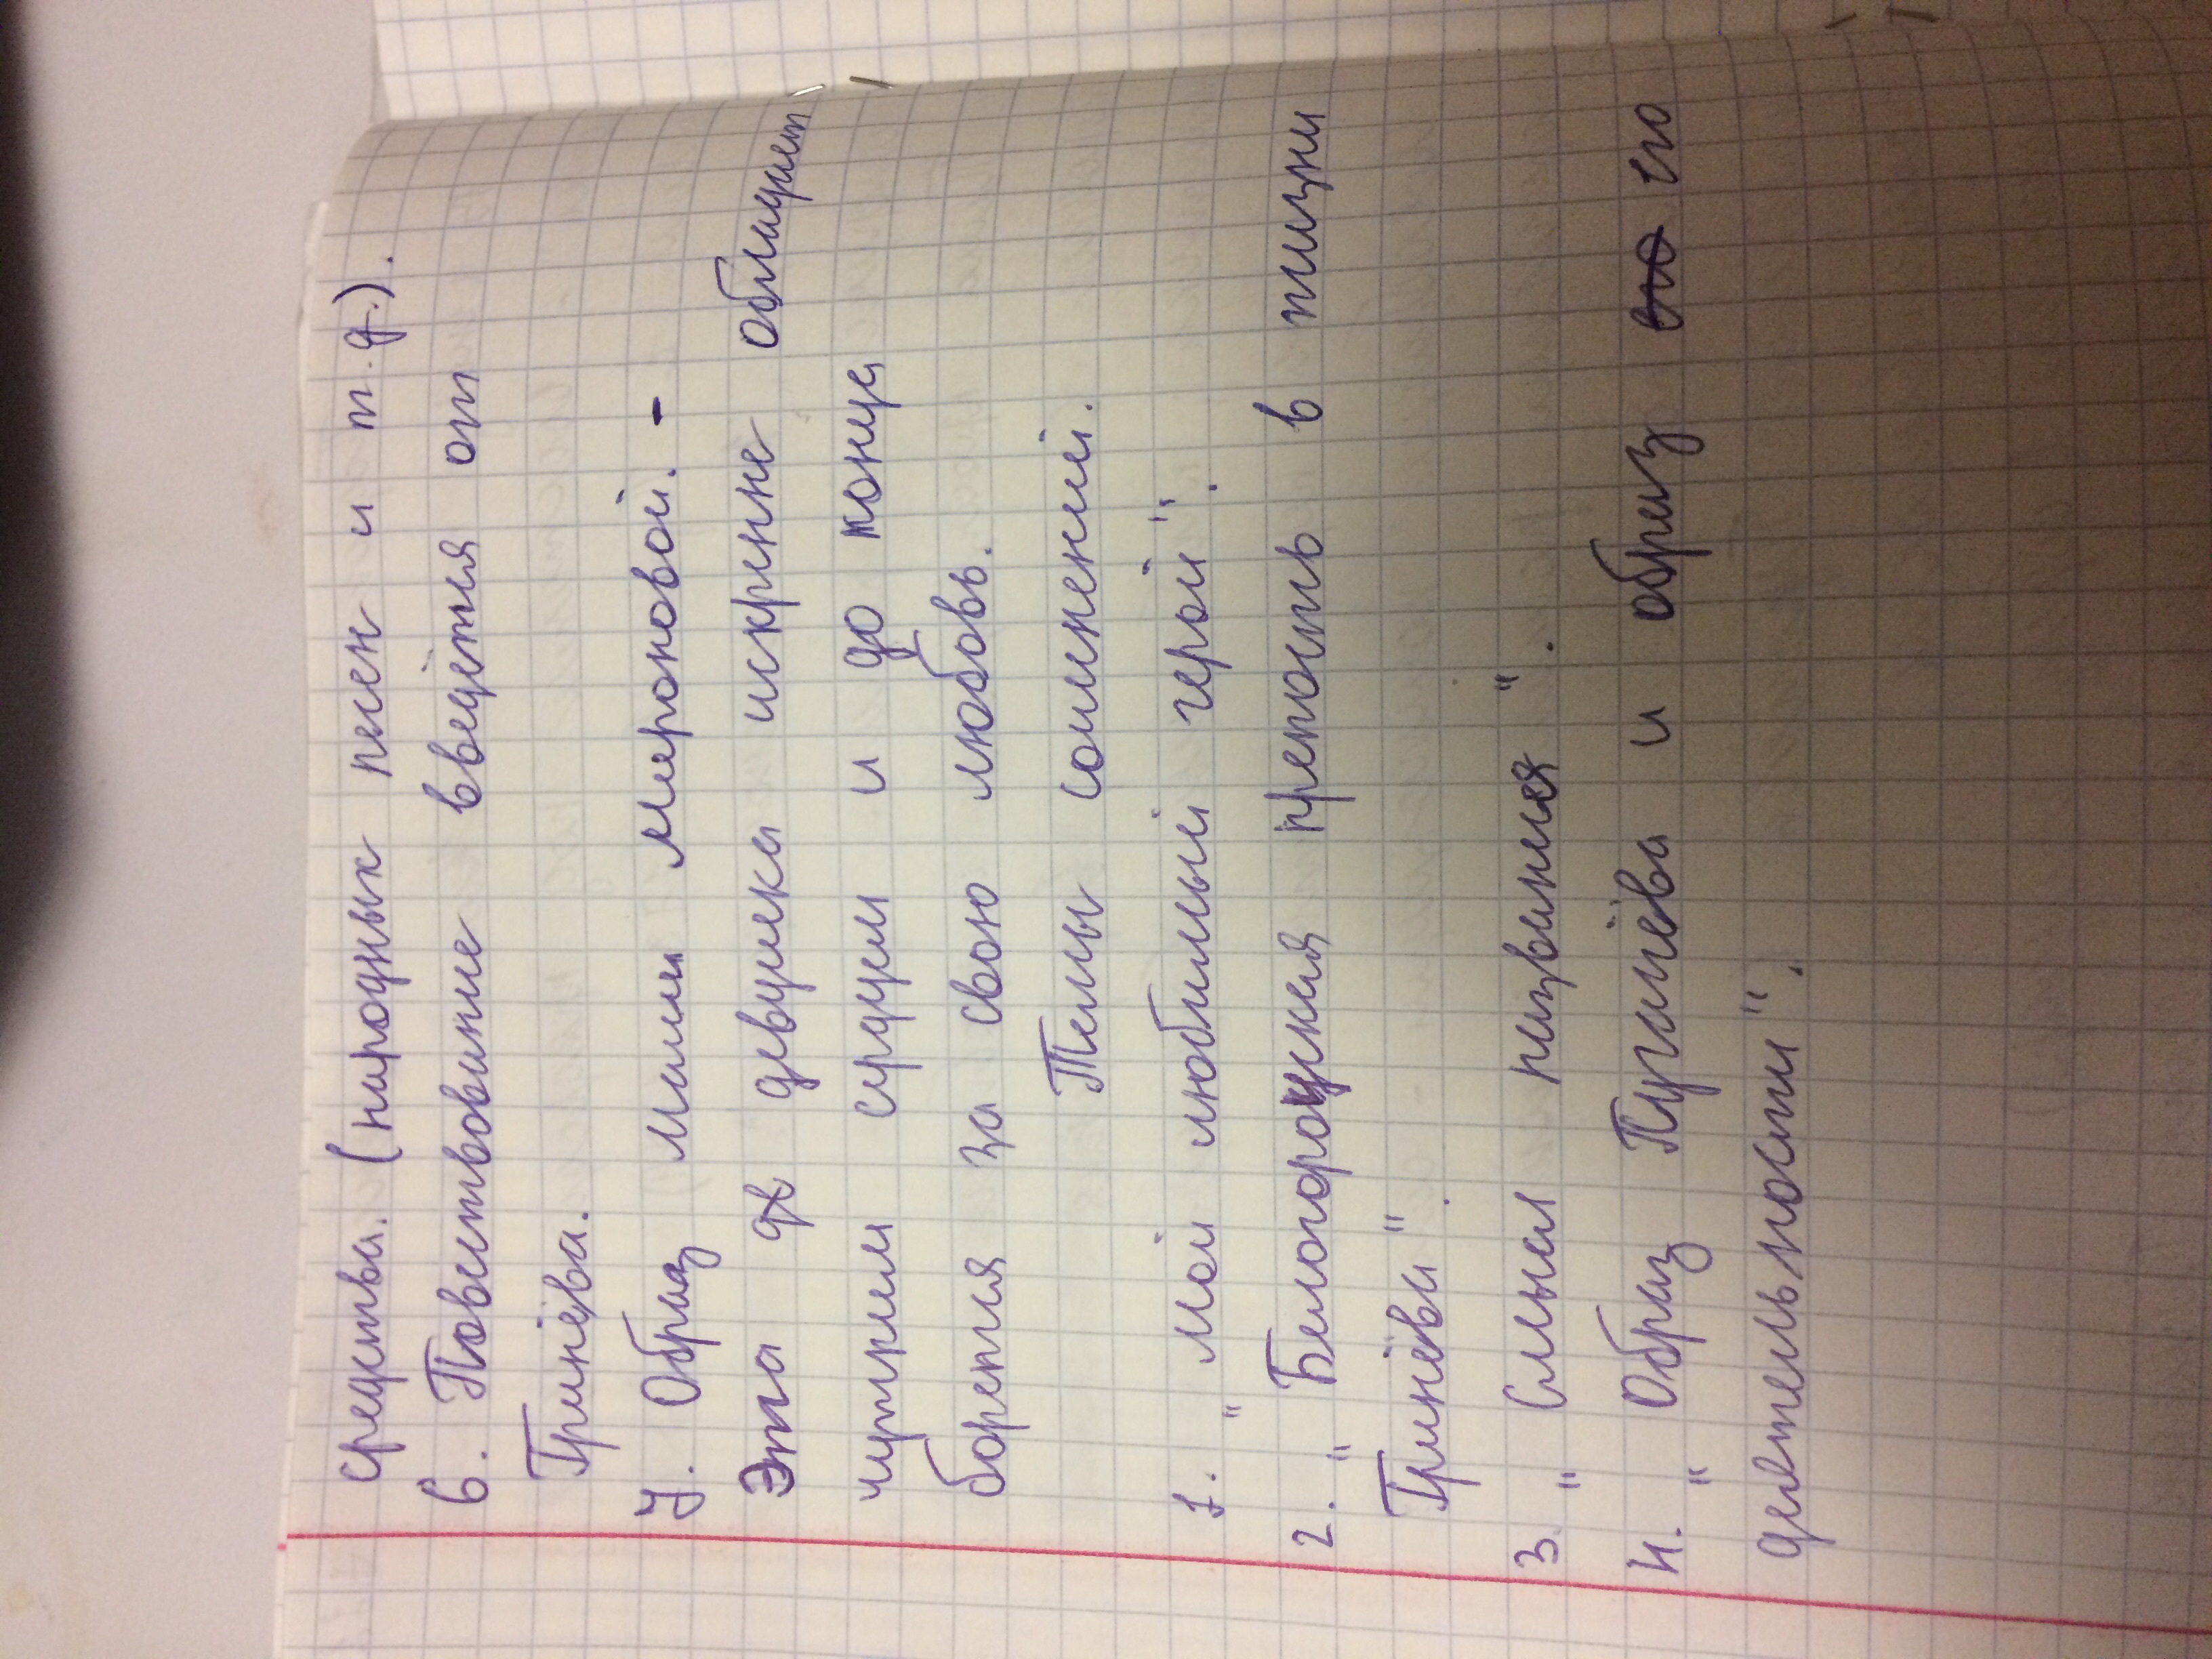 средства. (народных песен и т.д.).
6. Повествование введётся от
Гринёва.
7. Образ Маши Мироновой. -
Эта дв девушка искренне обладает
чутким сердцем и до конца
борется за свою любовь.
Темы сочинений.
1. "Мой любимый герой".
2. "Белогороцкая крепость в жизни
Гринёва".
3. "Смысл названия".
4. "Образ Пугачёва и образ его
деятельности".